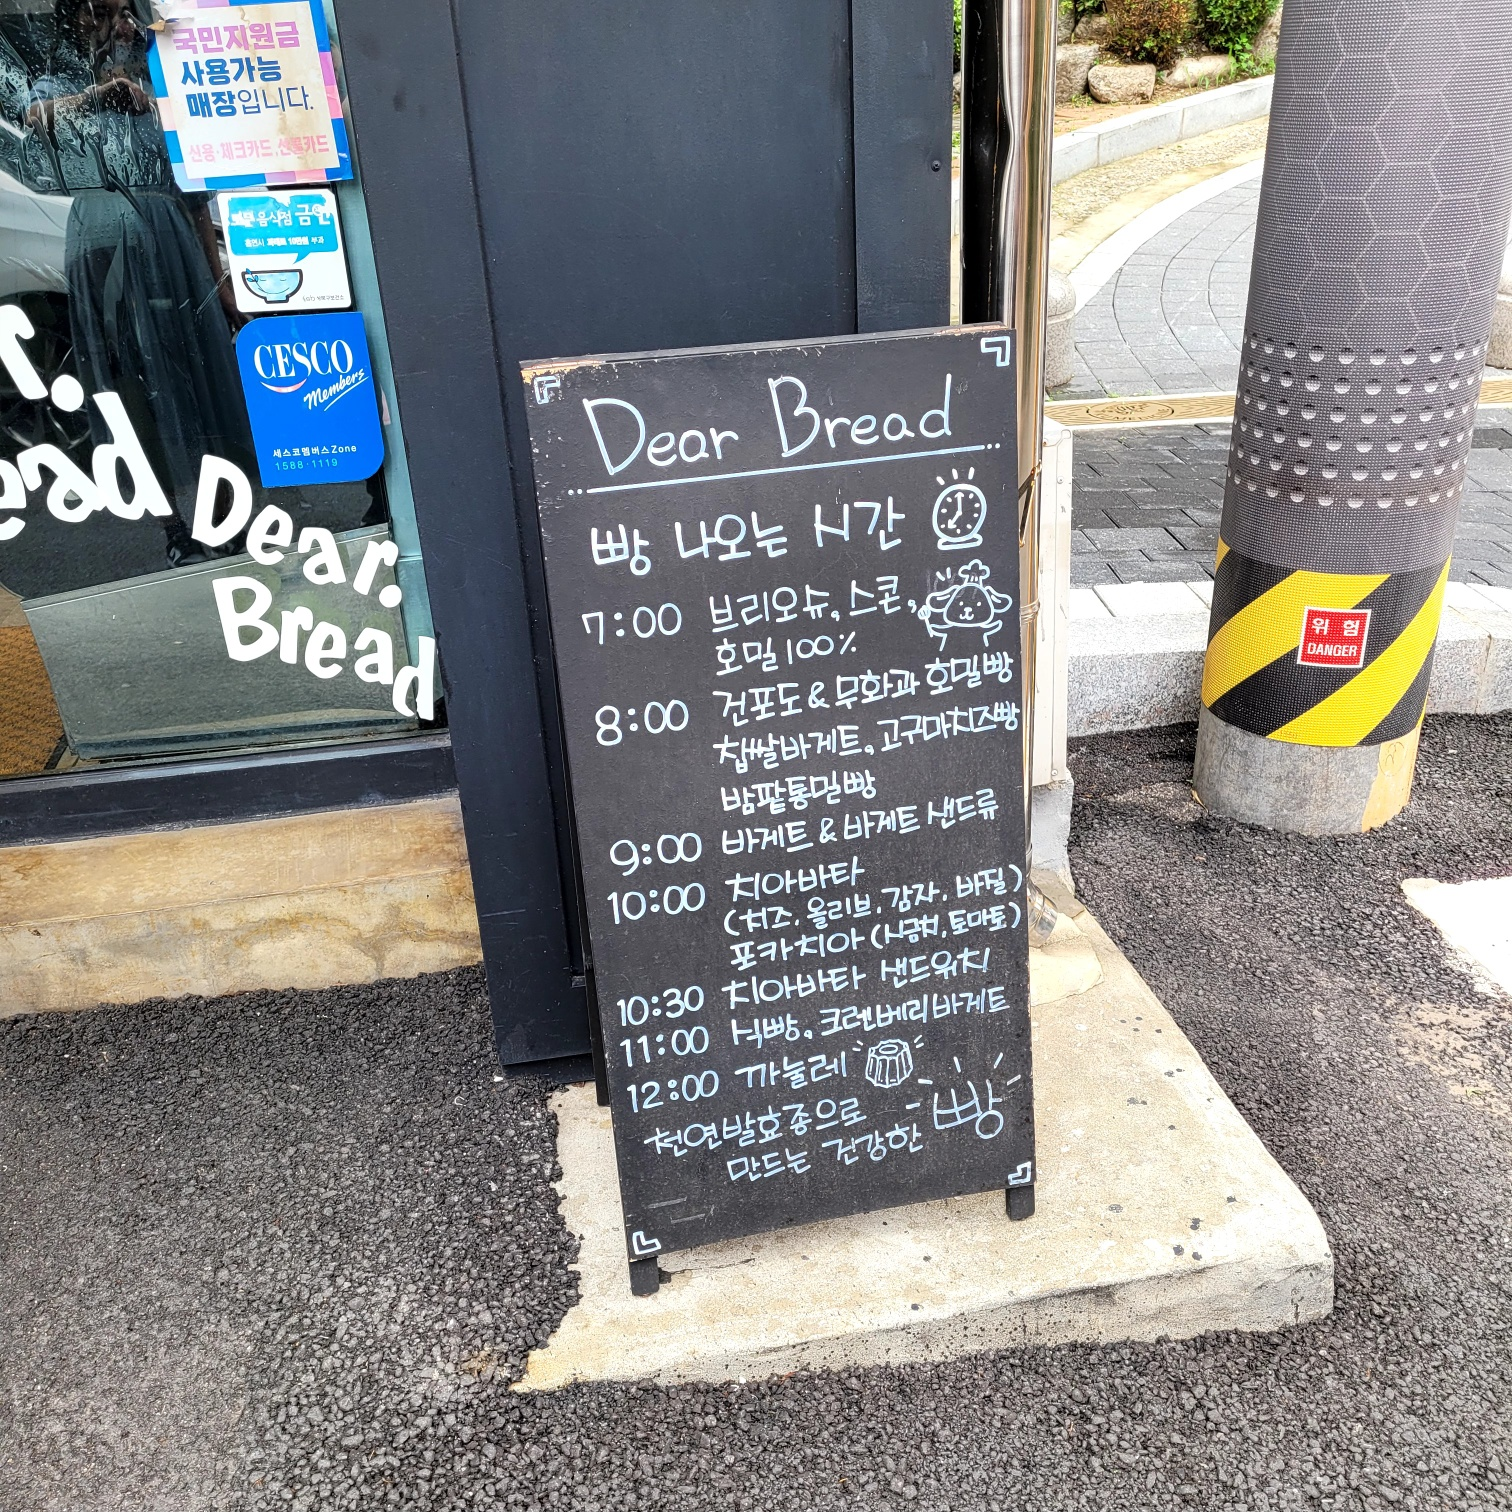 국민지원금
사용가능
매장입니다.
신용·체크카드, 선불카드
음식점 금연
CESCO
Members
세스코멤버스 Zone
1588·1119
r.
ead
Dear.
Bread
Dear Bread
빵 나오는 시간
7:00 브리오슈, 스콘,
호밀 100%
8:00 건포도 & 무화과 호밀빵
찹쌀바게트, 고구마치즈빵
밤팥통밀빵
9:00 바게트 & 바게트 샌드류
10:00 치아바타
(치즈, 올리브, 감자, 바질)
포카치아 (시금치, 토마토)
10:30 치아바타 샌드위치
11:00 식빵, 크렌베리바게트
12:00 까눌레
천연발효종으로
만드는 건강한 빵
위험
DANGER